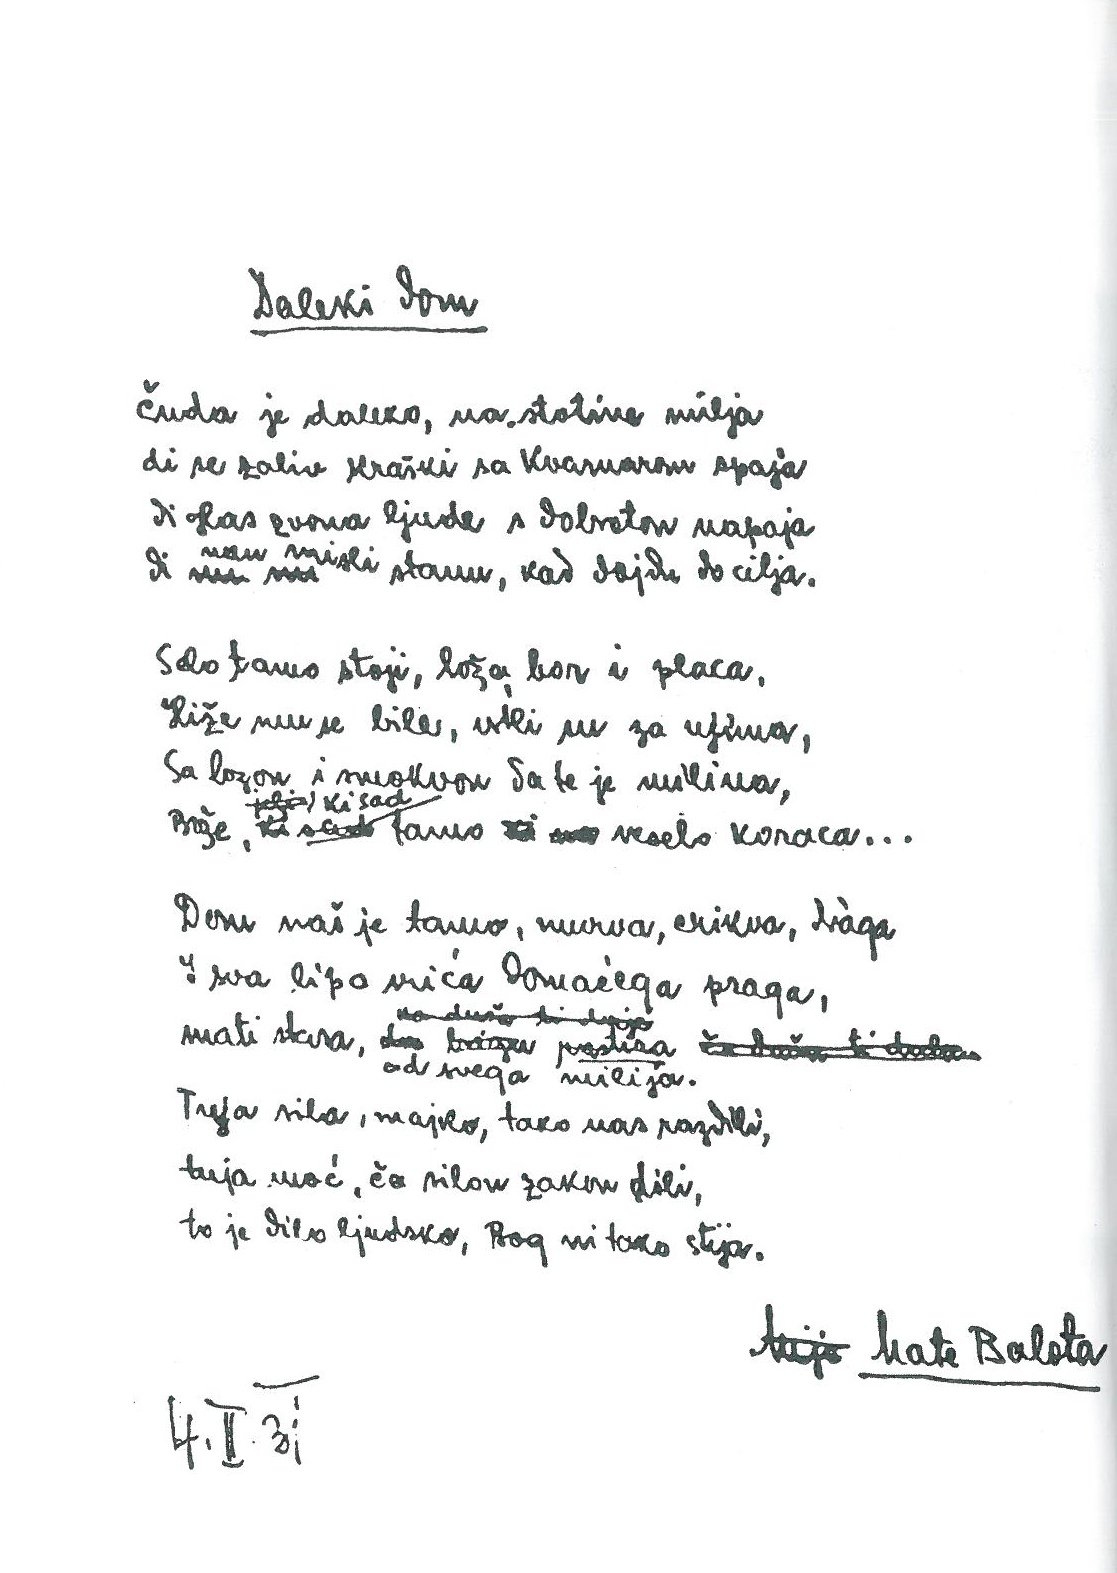 Daleki dom
Čuda je daleko, na stotine milja
di se zaliv Kraški sa Kvarnaron spaja
di glas zvona ljude s dobroton napaja
di nan misli stanu, kad dojdu do cilja.
Selo tamo stoji, loža, bor i placa,
Hiže mu se bile, uski su za užina,
Sa lozon i smokvon da te je milina,
jelji ki sad
Bože, ki sad tamo veselo koraca...
Dom naš je tamo, murva, crikva, draga
I sva lipa vrića domaćega praga,
mati stara,
od svega milija.
Tuja sila, majko, tako nas razdili,
tuja moć, ča silon zakon dili,
to je dilo ljudsko, Bog ni tako stija.
Mate Balota
4. II 31